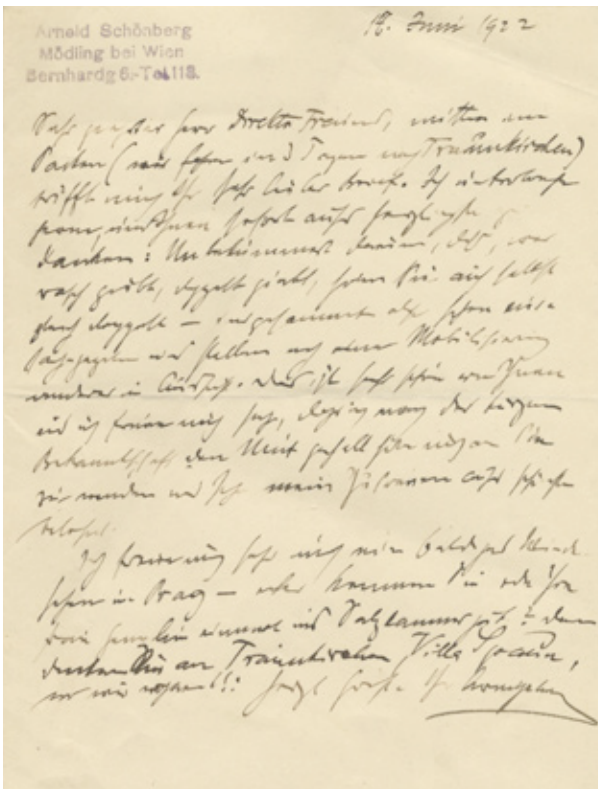 Arnold Schönberg
Mödling bei Wien
Bernhardg 6.-Tel 118.
Juni 1922
Sehr Herr Direktor Freund, mitten im
Packen (wir in 3 Tagen nach Traunkirchen)
trifft mich Ihr sehr lieber Brief. Ich
Ihnen sofort aufs herzlichste zu
danken: Unbekümmert darum, daß, wer
rasch giebt, doppelt giebt, haben Sie auch selbst
gleich doppelt –
und stellen noch einer Mobilisierung
anderer in Aussicht. Das ist sehr schön von Ihnen
und ich freue mich sehr, daß ich nach der kurzen
Bekanntschaft den Mut gehabt habe mich an Sie
zu wenden und sehe mein Vertrauen aufs schönste
belohnt.
Ich freue mich sehr auf ein baldiges Wieder-
sehen in Prag – oder kommen Sie oder Ihre
Frau Gemahlin einmal ins Salzkammergut: dann
denken Sie an Traunkirchen Villa
wo wir wohnen!!! Ihr